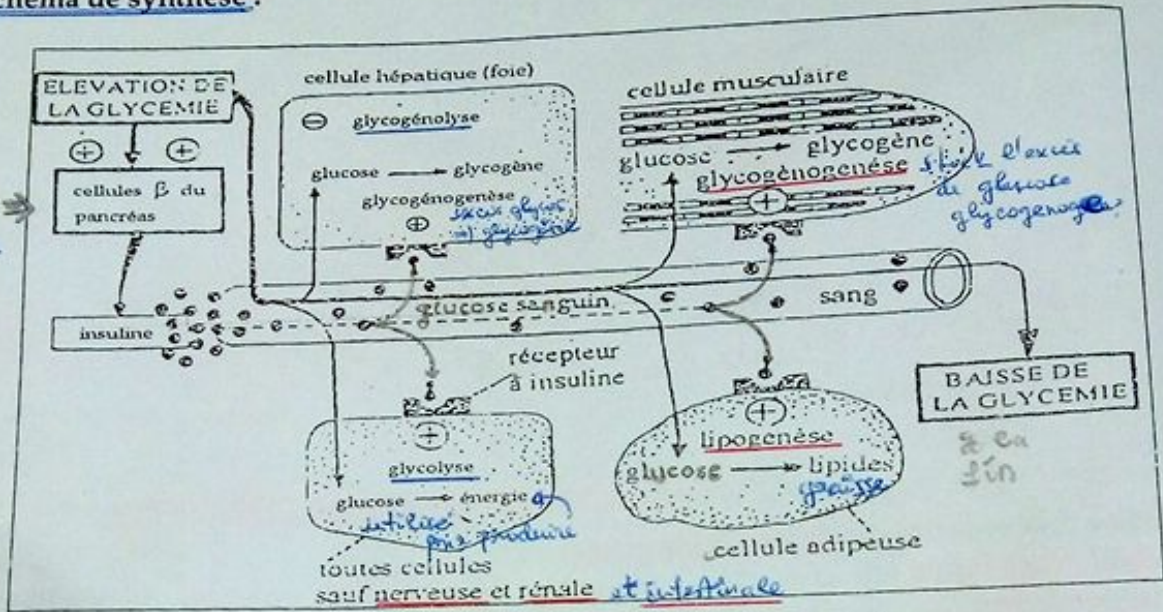 schéma de synthèse :
ELEVATION DE
LA GLYCEMIE
+ +
cellules β du
pancréas
insuline
cellule hépatique (foie)
− glycogénolyse
glucose → glycogène
glycogénogenèse
+
excès
glycogène
cellule musculaire
glucose → glycogène
glycogènogenése
+
l'excès
de glucose
glucose sanguin
sang
récepteur
à insuline
+
glycolyse
glucose → énergie
utilisé
pour produire
toutes cellules
sauf nerveuse et rénale et intestinale
+
lipogenèse
glucose → lipides
graisse
cellule adipeuse
BAISSE DE
LA GLYCEMIE